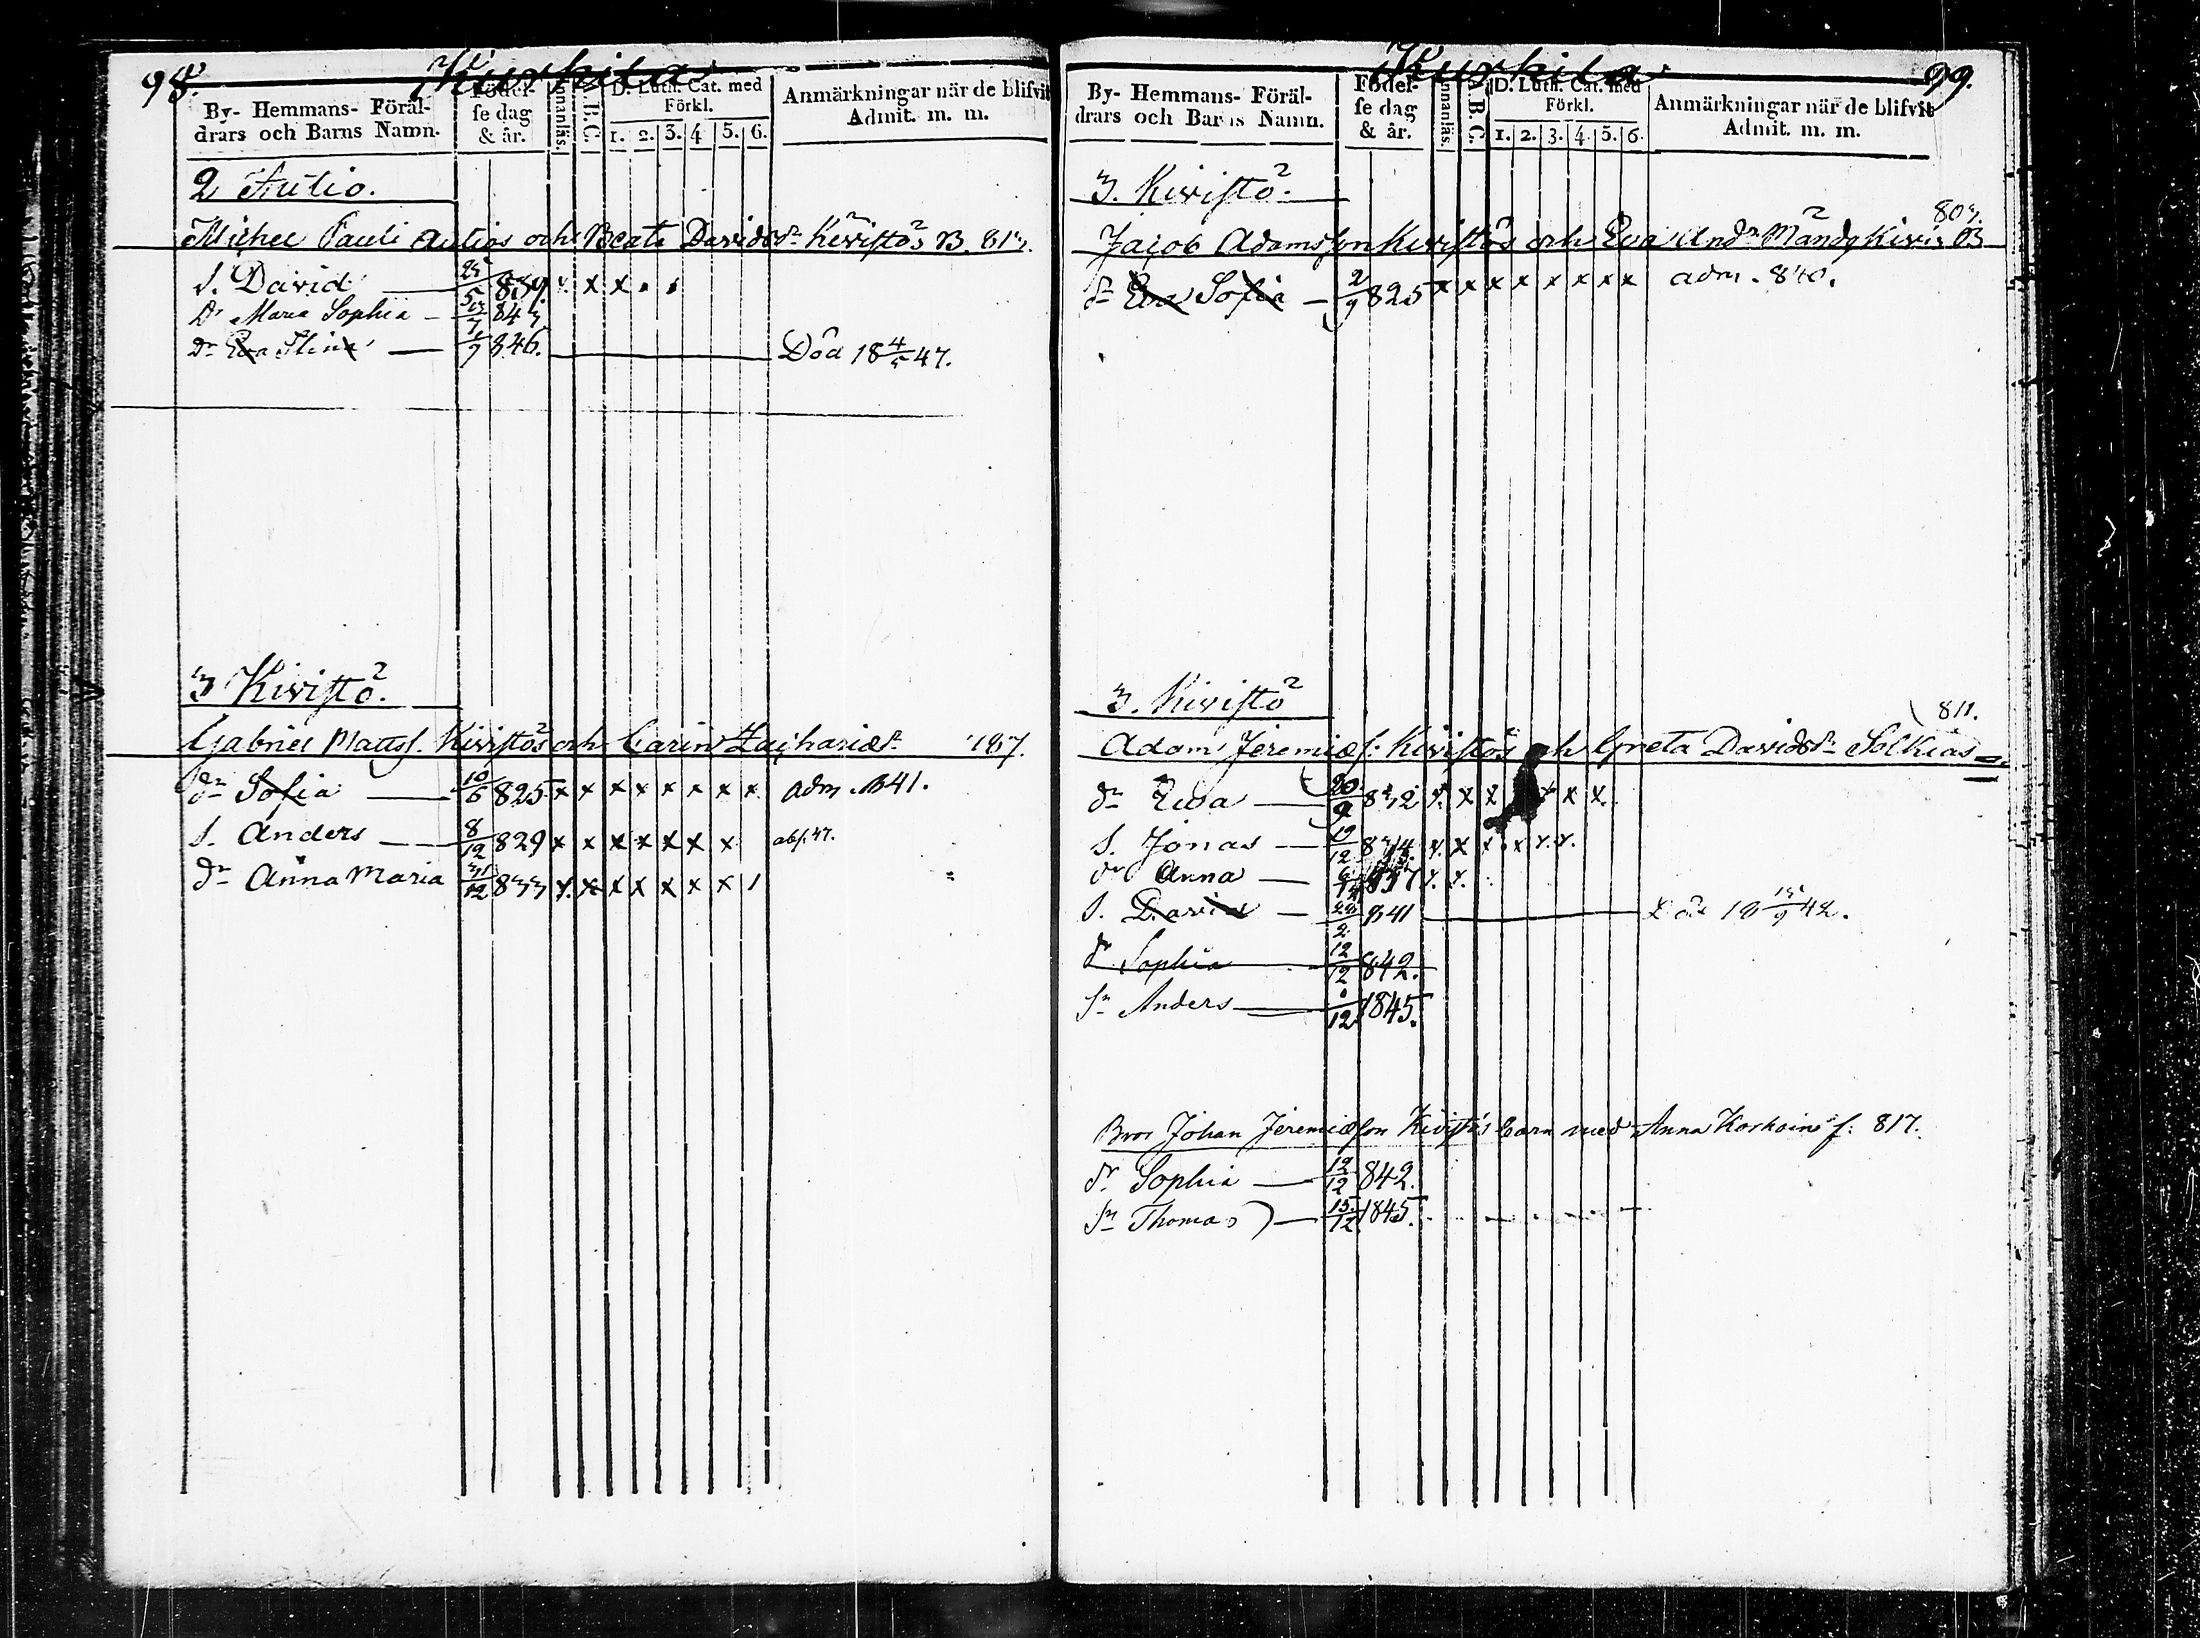 98.
Kurkila
By- Hemmans- Föräl-
drars och Barns Namn.
Födel-
se dag
& år.
Innanläs.
A.B.C.
D. Luth. Cat. med
Förkl.
1. 2. 3. 4 5. 6.
Anmärkningar när de blifvit
Admit. m. m.
2 Autio.
Michel Pauli Autios och Beata Davidsdr Kivistös B. 813.
S. David 25/5 839. x x x
Dr Maria Sophia 843
Dr Eva Stina 1/7 846. Död 18 4/5 47.
3 Kivistö.
Gabriel Matts. Kivistös och Carin Zachariædr
dr Sofia 10/6 825 x x x x x x x x adm. 841.
S. Anders 8/12 829 x x x x x x x abs. 47.
dr Anna Maria 31/12 833 x x x x x x x 1
99.
Kurkila
By- Hemmans- Föräl-
drars och Barns Namn.
Födel-
se dag
& år.
Innanläs.
A.B.C.
D. Luth. Cat. med
Förkl.
1. 2. 3. 4. 5. 6.
Anmärkningar när de blifvit
Admit. m. m.
3. Kivistö.
803.
Jacob Adamsson Kivistös och Eva Andr
dr Eva Sofia 2/9 825 x x x x x x x x adm. 840.
3. Kivistö
811.
Adam Jeremiæs. Kivistös och Greta Davidsdr Solkias
dr Ewa 20/9 832 x x x x x x
S. Jonas 19/12 834 x x x x x x
dr Anna 837 x x
S. David 841 Död 18 42.
dr Sophia 12/12 842.
Sn Anders 1845.
Bror Johan Jeremiæson Kivistös barn med Anna f: 817.
dr Sophia 12/12 842.
Sn Thomas) 15/12 1845.